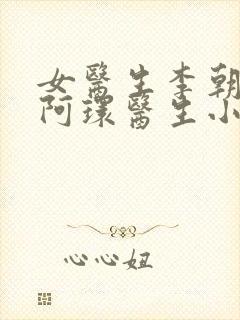 女醫生李朝
阿環醫生小
心心妞